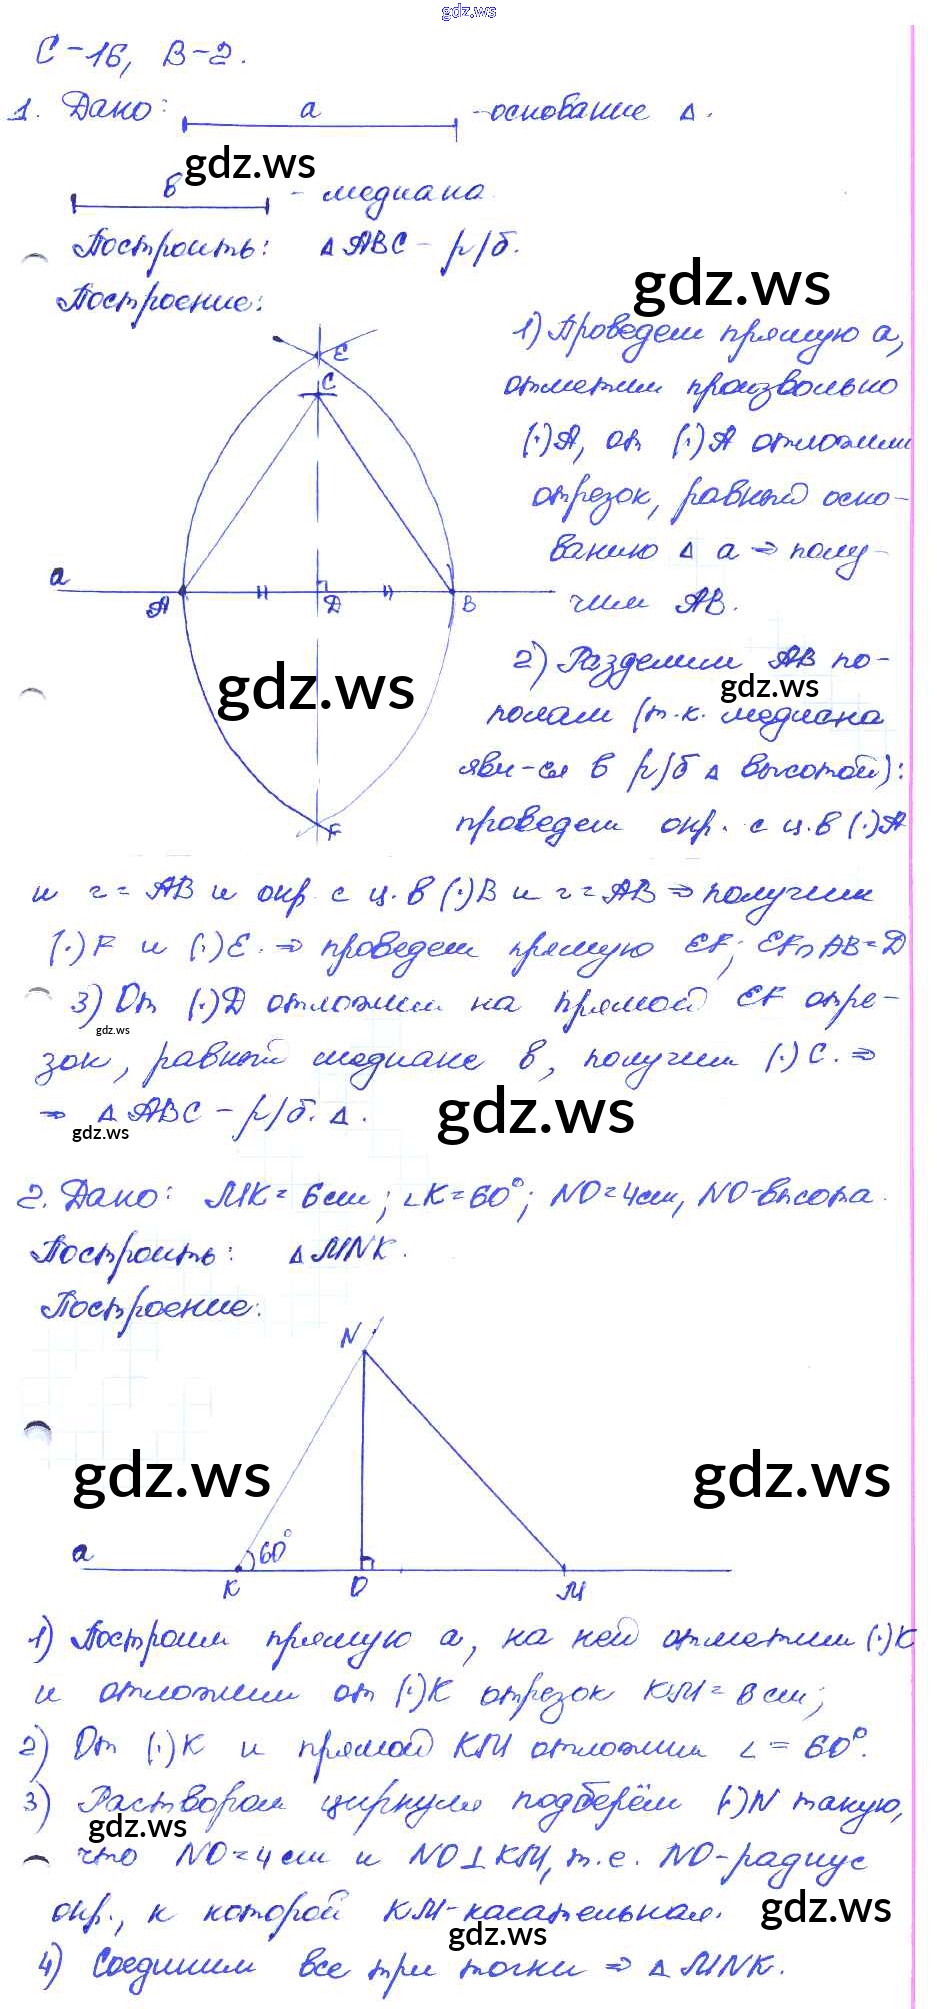 gdz.ws
С-16, В-2.
1. Дано: a - основание Δ.
gdz.ws
в - медиана
Построить: Δ ABC - р/б.
gdz.ws
Построение:
1) Проведем прямую a,
отметим произвольно
(·)A, от (·)A отложим
отрезок, равный осно-
ванию Δ a ⇒ полу-
чим AB.
E
C
a
A
D
B
F
gdz.ws
2) Разделим AB по-
gdz.ws
полам (т.к. медиана
явл-ся в р/б Δ высотой):
проведем окр. с ц. в (·)A
и r = AB и окр с ц. в (·)B и r = AB ⇒ получим
(·)F и (·)E. ⇒ проведем прямую EF; EF∩AB=D
3) От (·)D отложим на прямой EF отре-
gdz.ws
зок, равный медиане в, получим (·)C. ⇒
⇒ Δ ABC - р/б. Δ.
gdz.ws
gdz.ws
2. Дано: MK = 6см; ∠K=60°; NO=4см, NO-высота.
Построить: Δ MNK.
Построение:
N
gdz.ws
gdz.ws
a
60°
K
O
M
1) Построим прямую a, на ней отметим (·)K
и отложим от (·)K отрезок KM = 6см;
2) От (·)K и прямой KM отложим ∠ = 60°.
3) Раствором циркуля подберём (·)N такую,
gdz.ws
что NO=4см и NO⊥KM, т.е. NO-радиус
окр., к которой KM-касательная.
gdz.ws
gdz.ws
4) Соединим все три точки ⇒ Δ MNK.